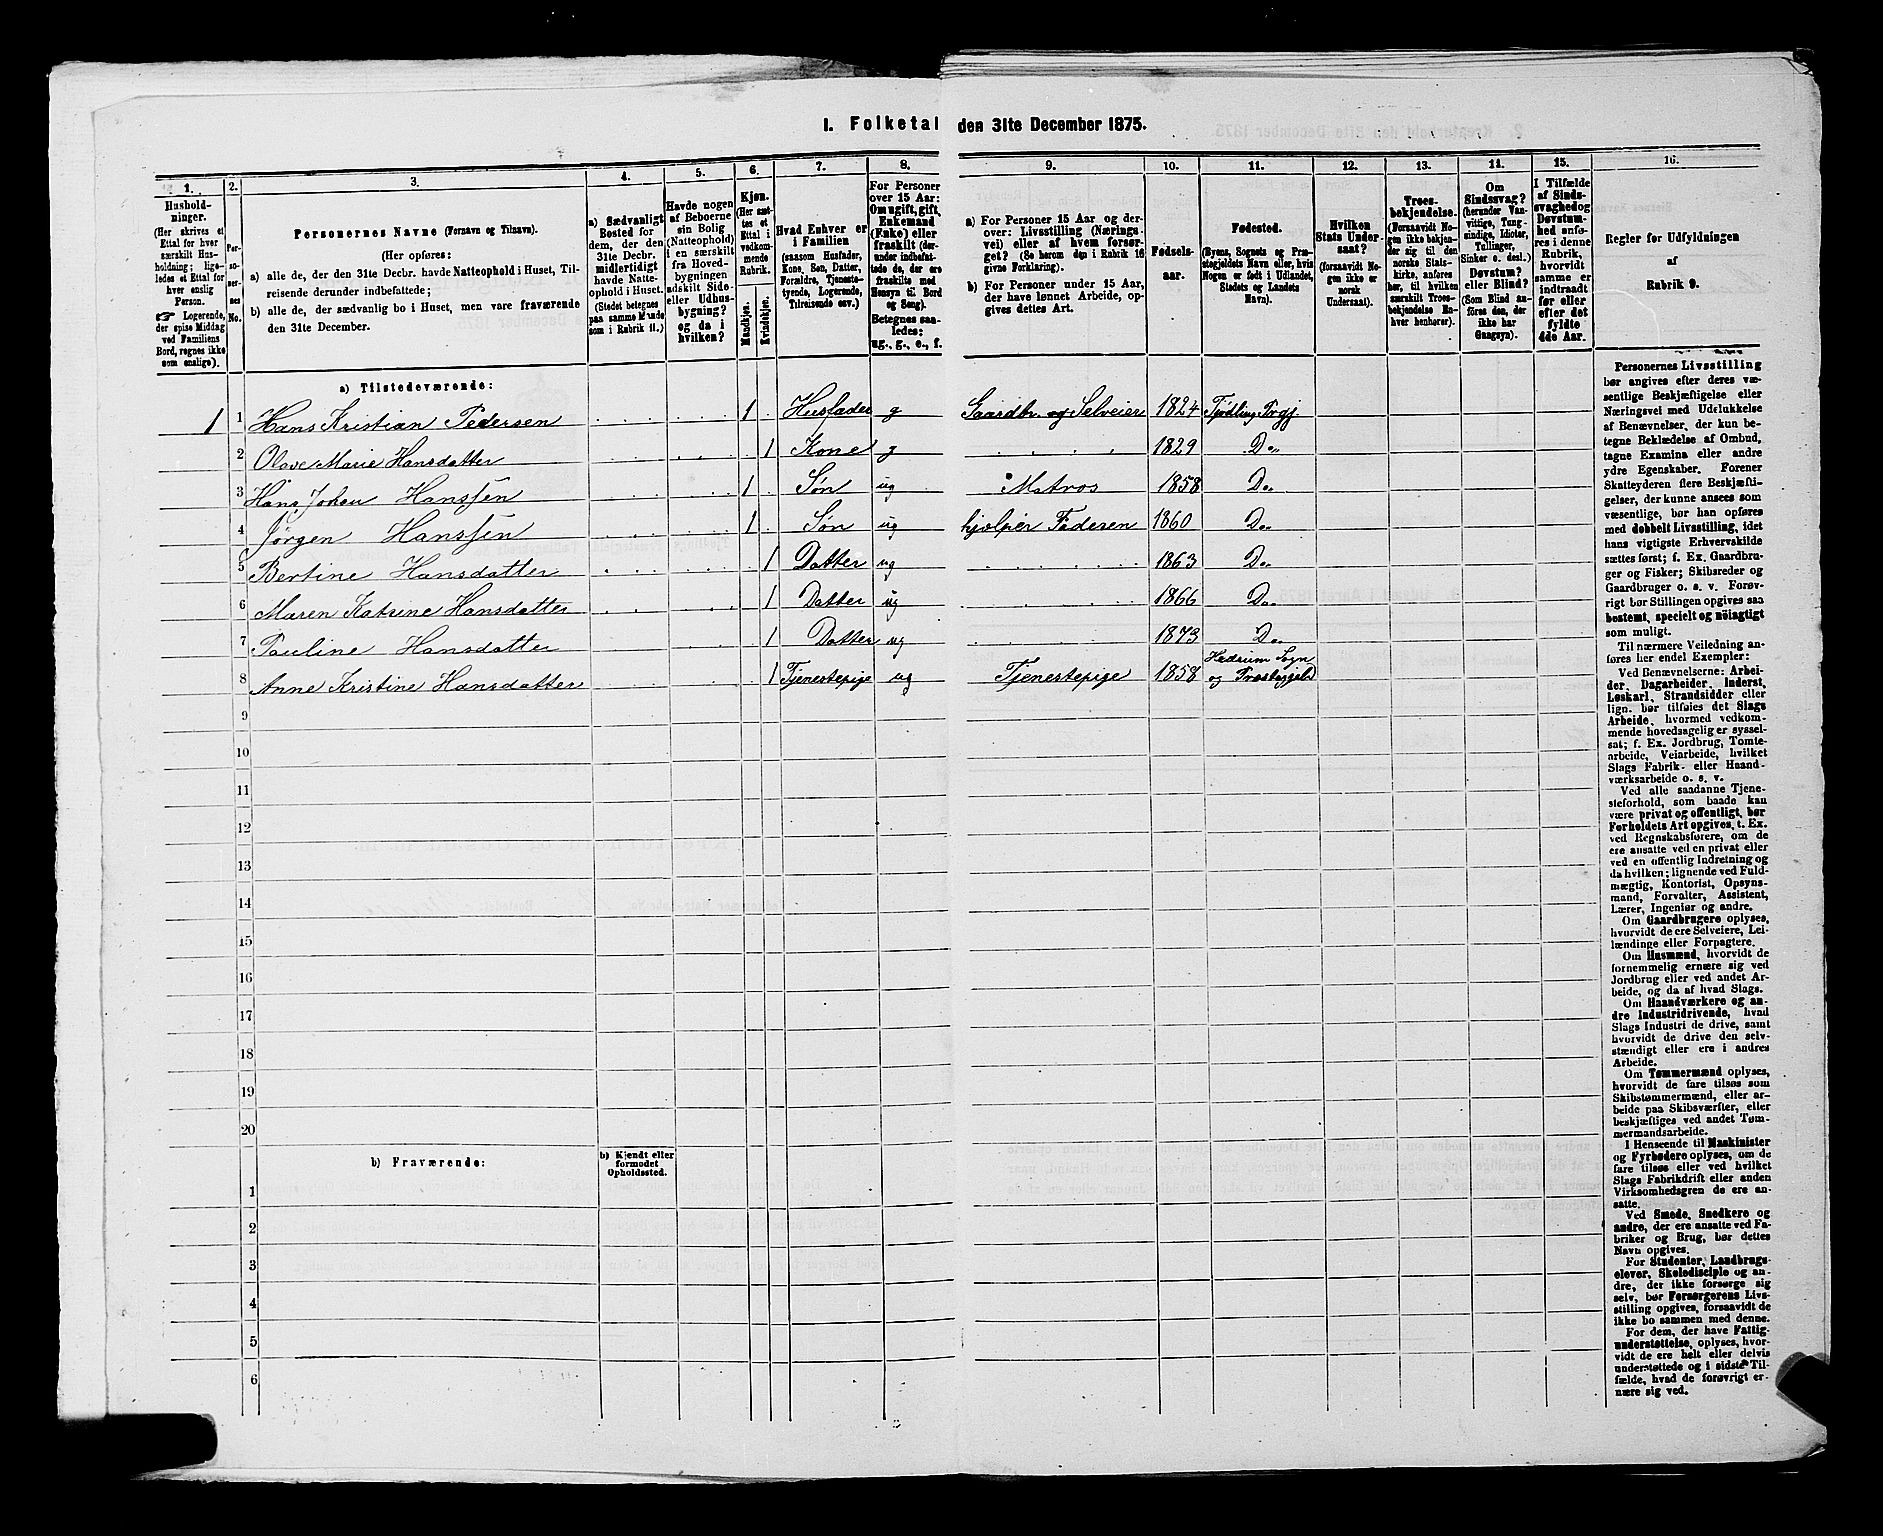 I. Folketal den 31te December 1875.
1. 2. 3. 4. 5. 6. 7. 8. 9. 10. 11. 12. 13. 14. 15. 16.
Husholdninger.
(Her skrives et
Ettal for hver
særskilt Husholdning;
ligeledes et Ettal for
hver enslig
Person.
☞ Logerende,
der spise Middag
ved Familiens
Bord, regnes ikke
som enslige).
Personernes No.
Personernes Navne (Fornavn og Tilnavn).
(Her opføres:
a) alle de, der den 31te Decbr. havde Natteophold i Huset, Tilreisende derunder indbefattede;
b) alle de, der sædvanlig bo i Huset, men vare fraværende
den 31te December.
a) Sædvanligt
Bosted for
dem, der den
31te Decbr.
midlertidigt
havde Natteophold i Huset.
(Stedet betegnes
paa samme Maade
som i Rubrik 11.)
Havde nogen
af Beboerne
sin Bolig
(Natteophold)
i en særskilt
fra Hovedbygningen
adskilt Side-
eller Udhusbygning?
og da i
hvilken?
Kjøn.
(Her sættes et
Ettal i
vedkommende
Rubrik.)
Mandkjøn.
Kvindekjøn.
Hvad Enhver er
i Familien
(saasom Husfader,
Kone, Søn, Datter,
Forældre, Tjenestetyende, Logerende,
Tilreisende osv.)
For Personer
over 15 Aar:
Om ugift, gift,
Enkemand
(Enke) eller
fraskilt (derunder indbefattede de, der ere
fraskilte med
Hensyn til Bord
og Seng).
Betegnes saaledes:
ug., g., e., f.
a) For Personer 15 Aar og derover: Livsstilling (Næringsvei) eller af hvem forsørget? (Se herom den i Rubrik 16
givne Forklaring).
b) For Personer under 15 Aar,
der have lønnet Arbeide, opgives dettes Art.
Fødselsaar.
Fødested.
(Byens, Sognets og Præstegjeldets Navn eller, hvis
Nogen er født i Udlandet,
Stedets og Landets
Navn).
Hvilken
Stats Undersaat?
(forsaavidt Nogen ikke er
norsk
Undersaat).
Troesbekjendelse.
(Forsaavidt Nogen ikke bekjender sig til den
norske Statskirke, anføres
her, til hvilken
særskilt Troesbekjendelse Enhver henhører).
Om
Sindssvag?
(herunder Vanvittige, Tungsindige, Idioter,
Tullinger,
Sinker o. desl.)
Døvstum?
eller Blind?
(Som Blind anføres den, der
ikke har
Gangsyn).
I Tilfælde
af Sindssvaghed og
Døvstumhed anføres i denne
Rubrik,
hvorvidt
samme er
indtraadt
før eller
efter det
fyldte
4de Aar.
Regler for Udfyldningen
af
Rubrik 9.
a) Tilstedeværende:
1 1 Hans Kristian Pedersen 1 Husfader g Gaardbr. og Selveier 1824 Tjødling Prgj
2 Olave Marie Hansdatter 1 Kone g 1829 Do.
3 Hans Johan Hanssen 1 Søn ug Matros 1858 Do.
4 Jørgen Hanssen 1 Søn ug hjælper Faderen 1860 Do.
5 Bertine Hansdatter 1 Datter ug 1863 Do.
6 Maren Katrine Hansdatter 1 Datter ug 1866 Do.
7 Pauline Hansdatter 1 Datter ug 1873 Do.
8 Anne Kristine Hansdatter 1 Tjenestepige ug Tjenestepige 1858 Hedrum Sogn
og Præstegjeld
9
10
11
12
13
14
15
16
17
18
19
20
b) Fraværende:
b) Kjendt eller
formodet
Opholdssted.
1
2
3
4
5
6
Personernes Livsstilling
bør angives efter deres væsentlige Beskjæftigelse eller
Næringsvei med Udelukkelse
af Benævnelser, der kun betegne Beklædelse af Ombud,
tagne Examina eller andre
ydre Egenskaber. Forener
Skatteyderen flere Beskjæftigelser, der kunne ansees som
væsentlige, bør han opføres
med dobbelt Livsstilling, idet
hans vigtigste Erhvervskilde
sættes først; f. Ex. Gaardbruger og Fisker; Skibsreder og
Gaardbruger o. s. v. Forøvrigt bør Stillingen opgives saa
bestemt, specielt og nøiagtigt
som muligt.
Til nærmere Veiledning anføres her endel Exempler:
Ved Benævnelserne: Arbeider, Dagarbeider, Inderst,
Løskarl, Strandsidder eller
lign. bør tilføies det Slags
Arbeide, hvormed vedkommende hovedsagelig er sysselsat; f. Ex. Jordbrug, Tomtearbeide, Veiarbeide, hvilket
Slags Fabrik- eller Haandværksarbeide o. s. v.
Ved alle saadanne Tjenesteforhold, som baade kan
være privat og offentligt, bør
Forholdets Art opgives, t. Ex.
ved Regnskabsførere, om de
ere ansatte ved en privat eller
ved en offentlig Indretning og
da hvilken; lignende ved Fuldmægtig, Kontorist, Opsynsmand, Forvalter, Assistent,
Lærer, Ingeniør og andre.
Om Gaardbrugere oplyses,
hvorvidt de ere Selveiere, Leilændinge eller Forpagtere.
Om Husmænd, hvorvidt de
fornemmelig ernære sig ved
Jordbrug eller ved andet Arbeide, og da af hvad Slags.
Om Haandværkere og andre Industridrivende, hvad
Slags Industri de drive, samt
hvorvidt de drive den selvstændigt eller ere i andres
Arbeide.
Om Tømmermænd oplyses,
hvorvidt de fare tilsøs som
Skibstømmermænd, eller arbeide paa Skibsværfter, eller
beskjæftiges ved andet Tømmermandsarbeide.
I Henseende til Maskinister
og Fyrbødere oplyses, om de
fare tilsøs eller ved hvilket
Slags Fabrikdrift eller anden
Virksomhedsgren de ere ansatte.
Ved Smede, Snedkere og
andre, der ere ansatte ved Fabriker og Brug, bør dettes
Navn opgives.
For Studenter, Landbrugselever, Skoledisciple og andre, der ikke forsørge sig
selv, bør Forsørgerens Livsstilling opgives, forsaavidt de
ikke bo sammen med denne.
For dem, der have Fattigunderstøttelse, oplyses, hvorvidt de ere helt eller delvis
understøttede og i sidste Tilfælde, hvad de forøvrigt ernære sig ved.